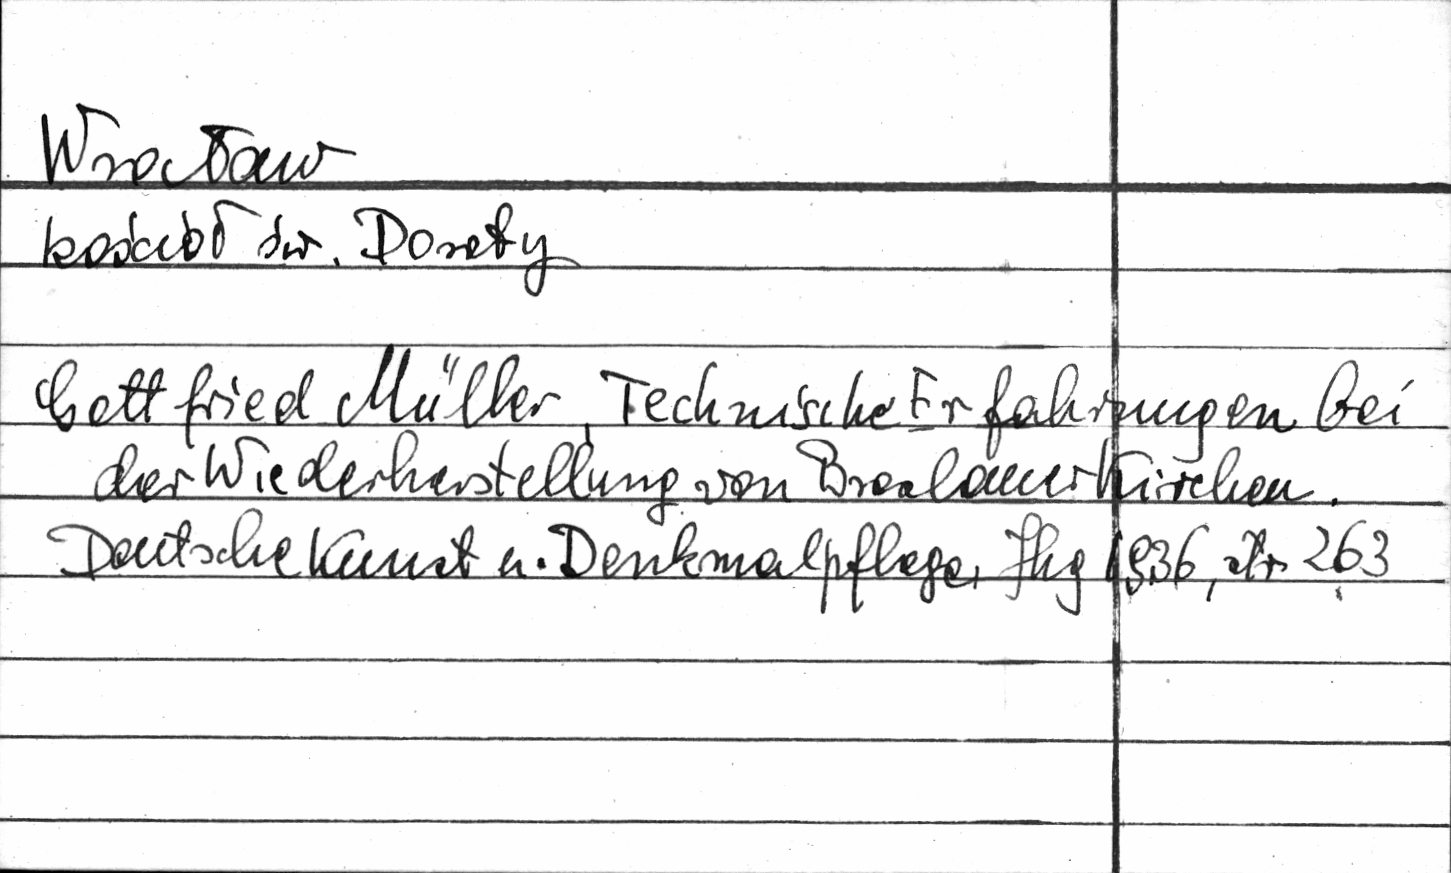 Wrocław
kościół św. Doroty
Gottfried Müller, Technische Erfahrungen bei
der Wiederherstellung von Breslauer Kirchen.
Deutsche Kunst u. Denkmalpflege, Jhg 1936, str 263